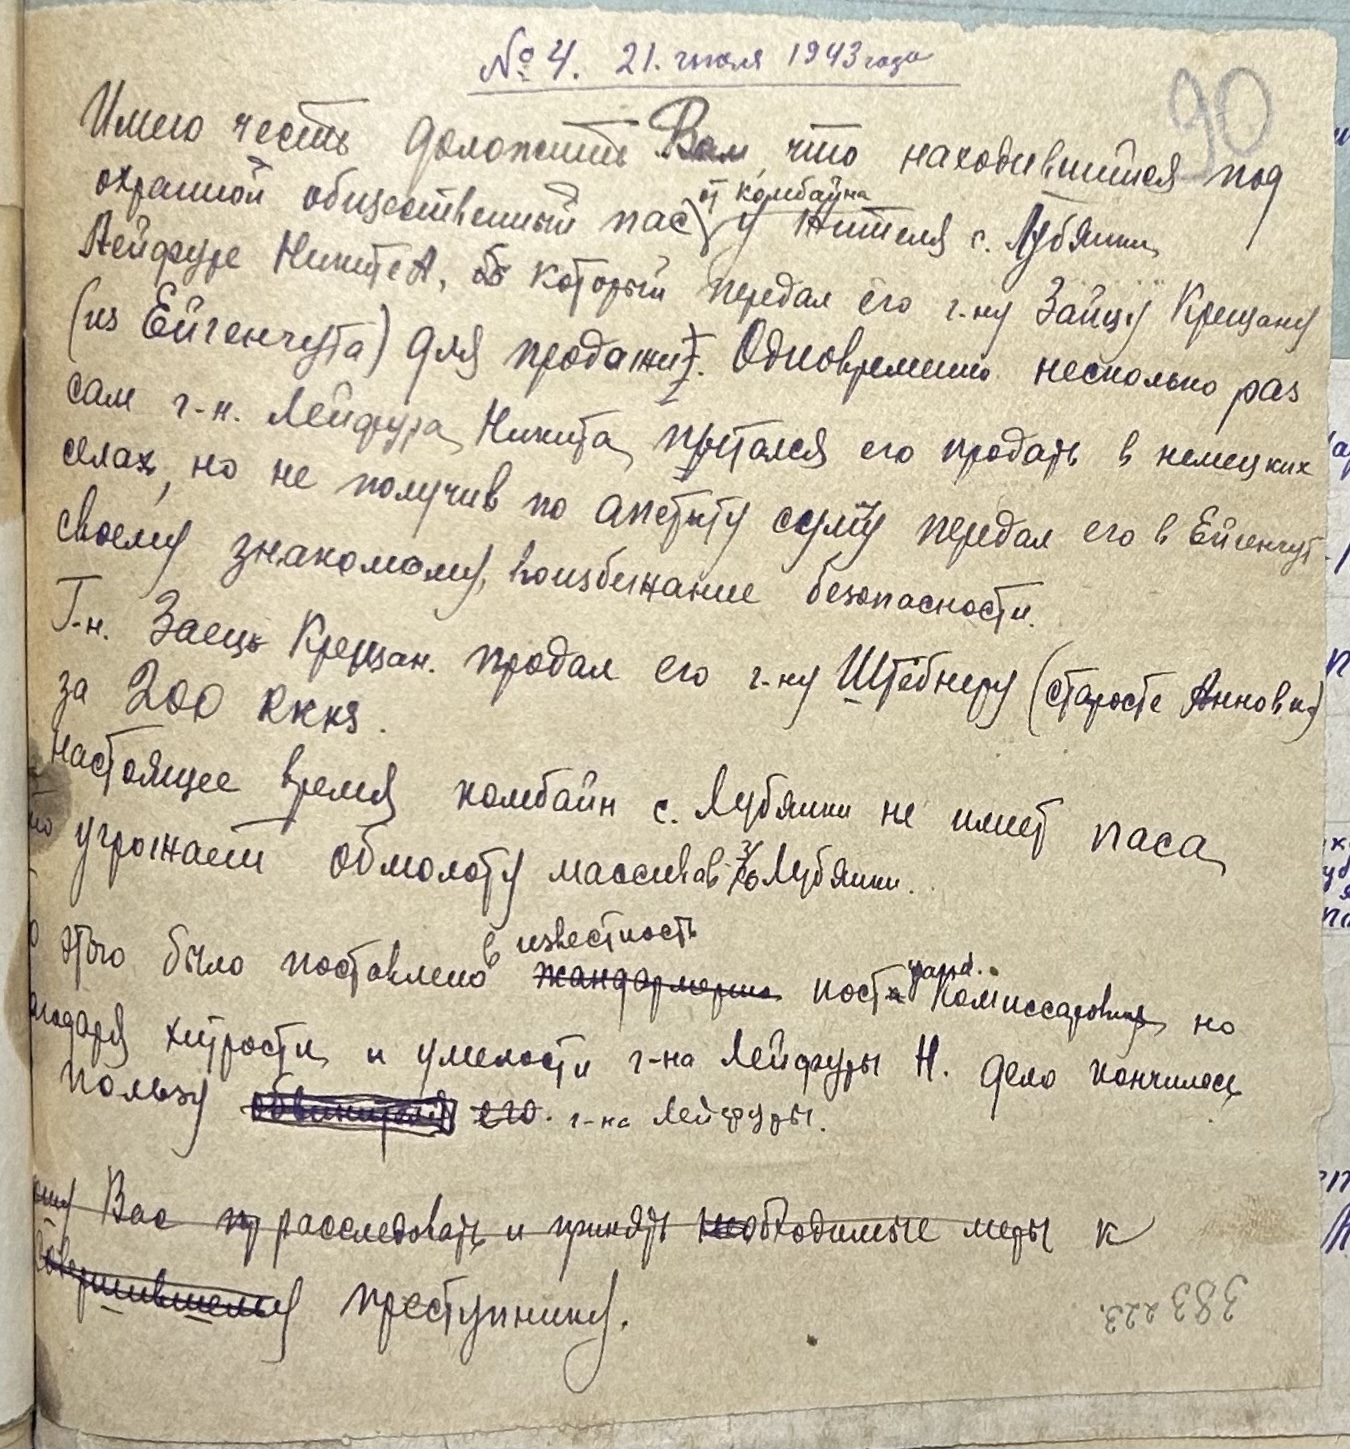 № 4. 21. июля 1943 года
90
Имею честь доложить Вам, что находившийся под
охраной общественный пас от комбайна у жителя с. Лубянки
Лейфуре Никите А, который передал его г-ну Зайцу Крещану
(из Ейгенчута) для продажи. Одновременно несколько раз
сам г-н. Лейфура Никита пытался его продать в немецких
селах, но не получив по апетиту сумму передал его в Ейгенгут
своему знакомому, воизбежание безопасности.
Г-н. Заець Крещан. продал его г-ну Штебнеру (старосте Анновки)
за 200 RKKS.
настоящее время комбайн с. Лубянки не имеет паса,
угрожает обмолоту массивов з/х Лубянки.
этого было поставлено в известность жандармерию пост жанд. Комиссаровка, но
хитрости и умелости г-на Лейфуры Н. дело кончилось
пользу обвинителя его. г-на Лейфуры.
Вас расследовать и принять необходимые меры к
совершившему преступнику.
383223.